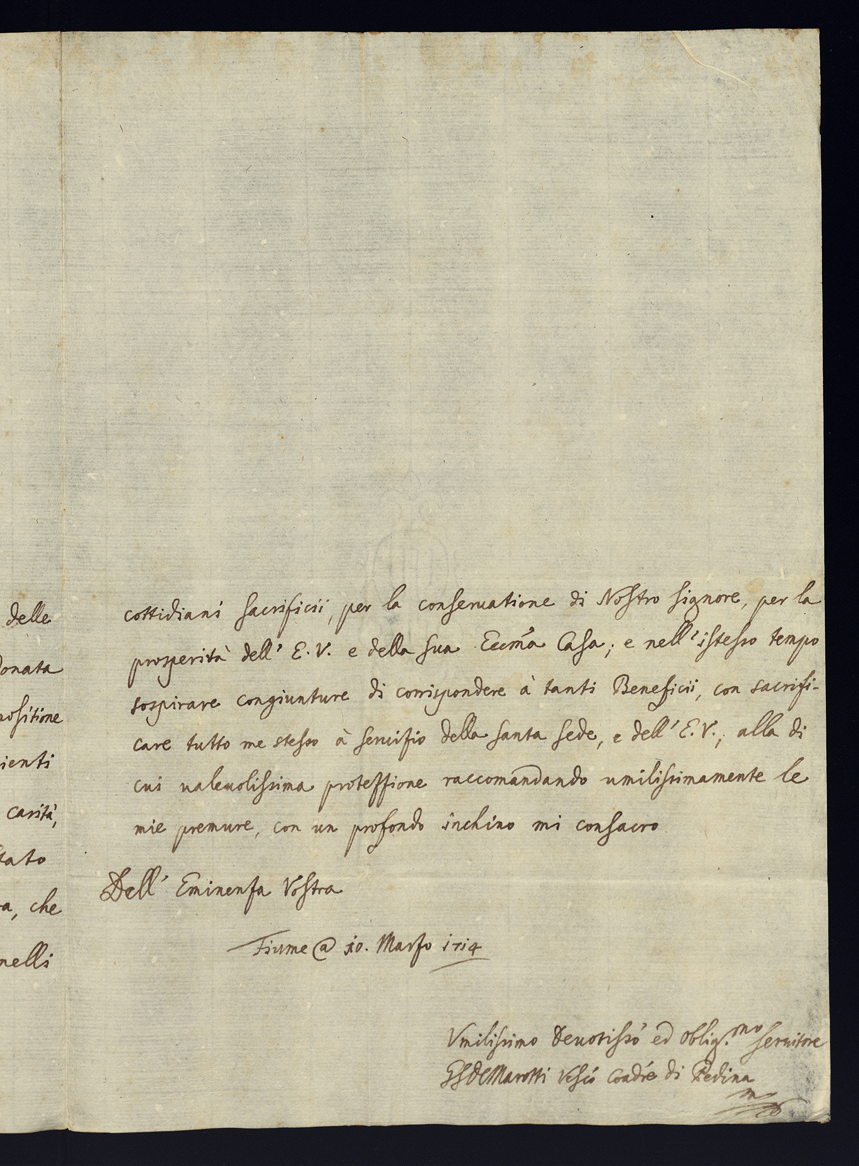 delle
Donata
positione
ienti
carità,
tato
a, che
nelli
cottidiani sacrificii, per la conseruatione di Nostro Signore, per la
prosperità dell' E. V. e della sua Eccma Casa; e nell'istesso tempo
sospirare congiunture di corrispondere à tanti Beneficii, con sacrifi-
care tutto me stesso à seruizio della Santa Sede, e dell' E. V.; alla di
cui ualeuolissima protezzione raccomandando umilissimamente le
mie premure, con un profondo inchino mi consacro
Dell' Eminenza Vostra
Fiume @ 10. Marzo 1714
Vmilissimo Deuotisso ed obligmo seruitore
Marotti Vesco Coadre di Pedina